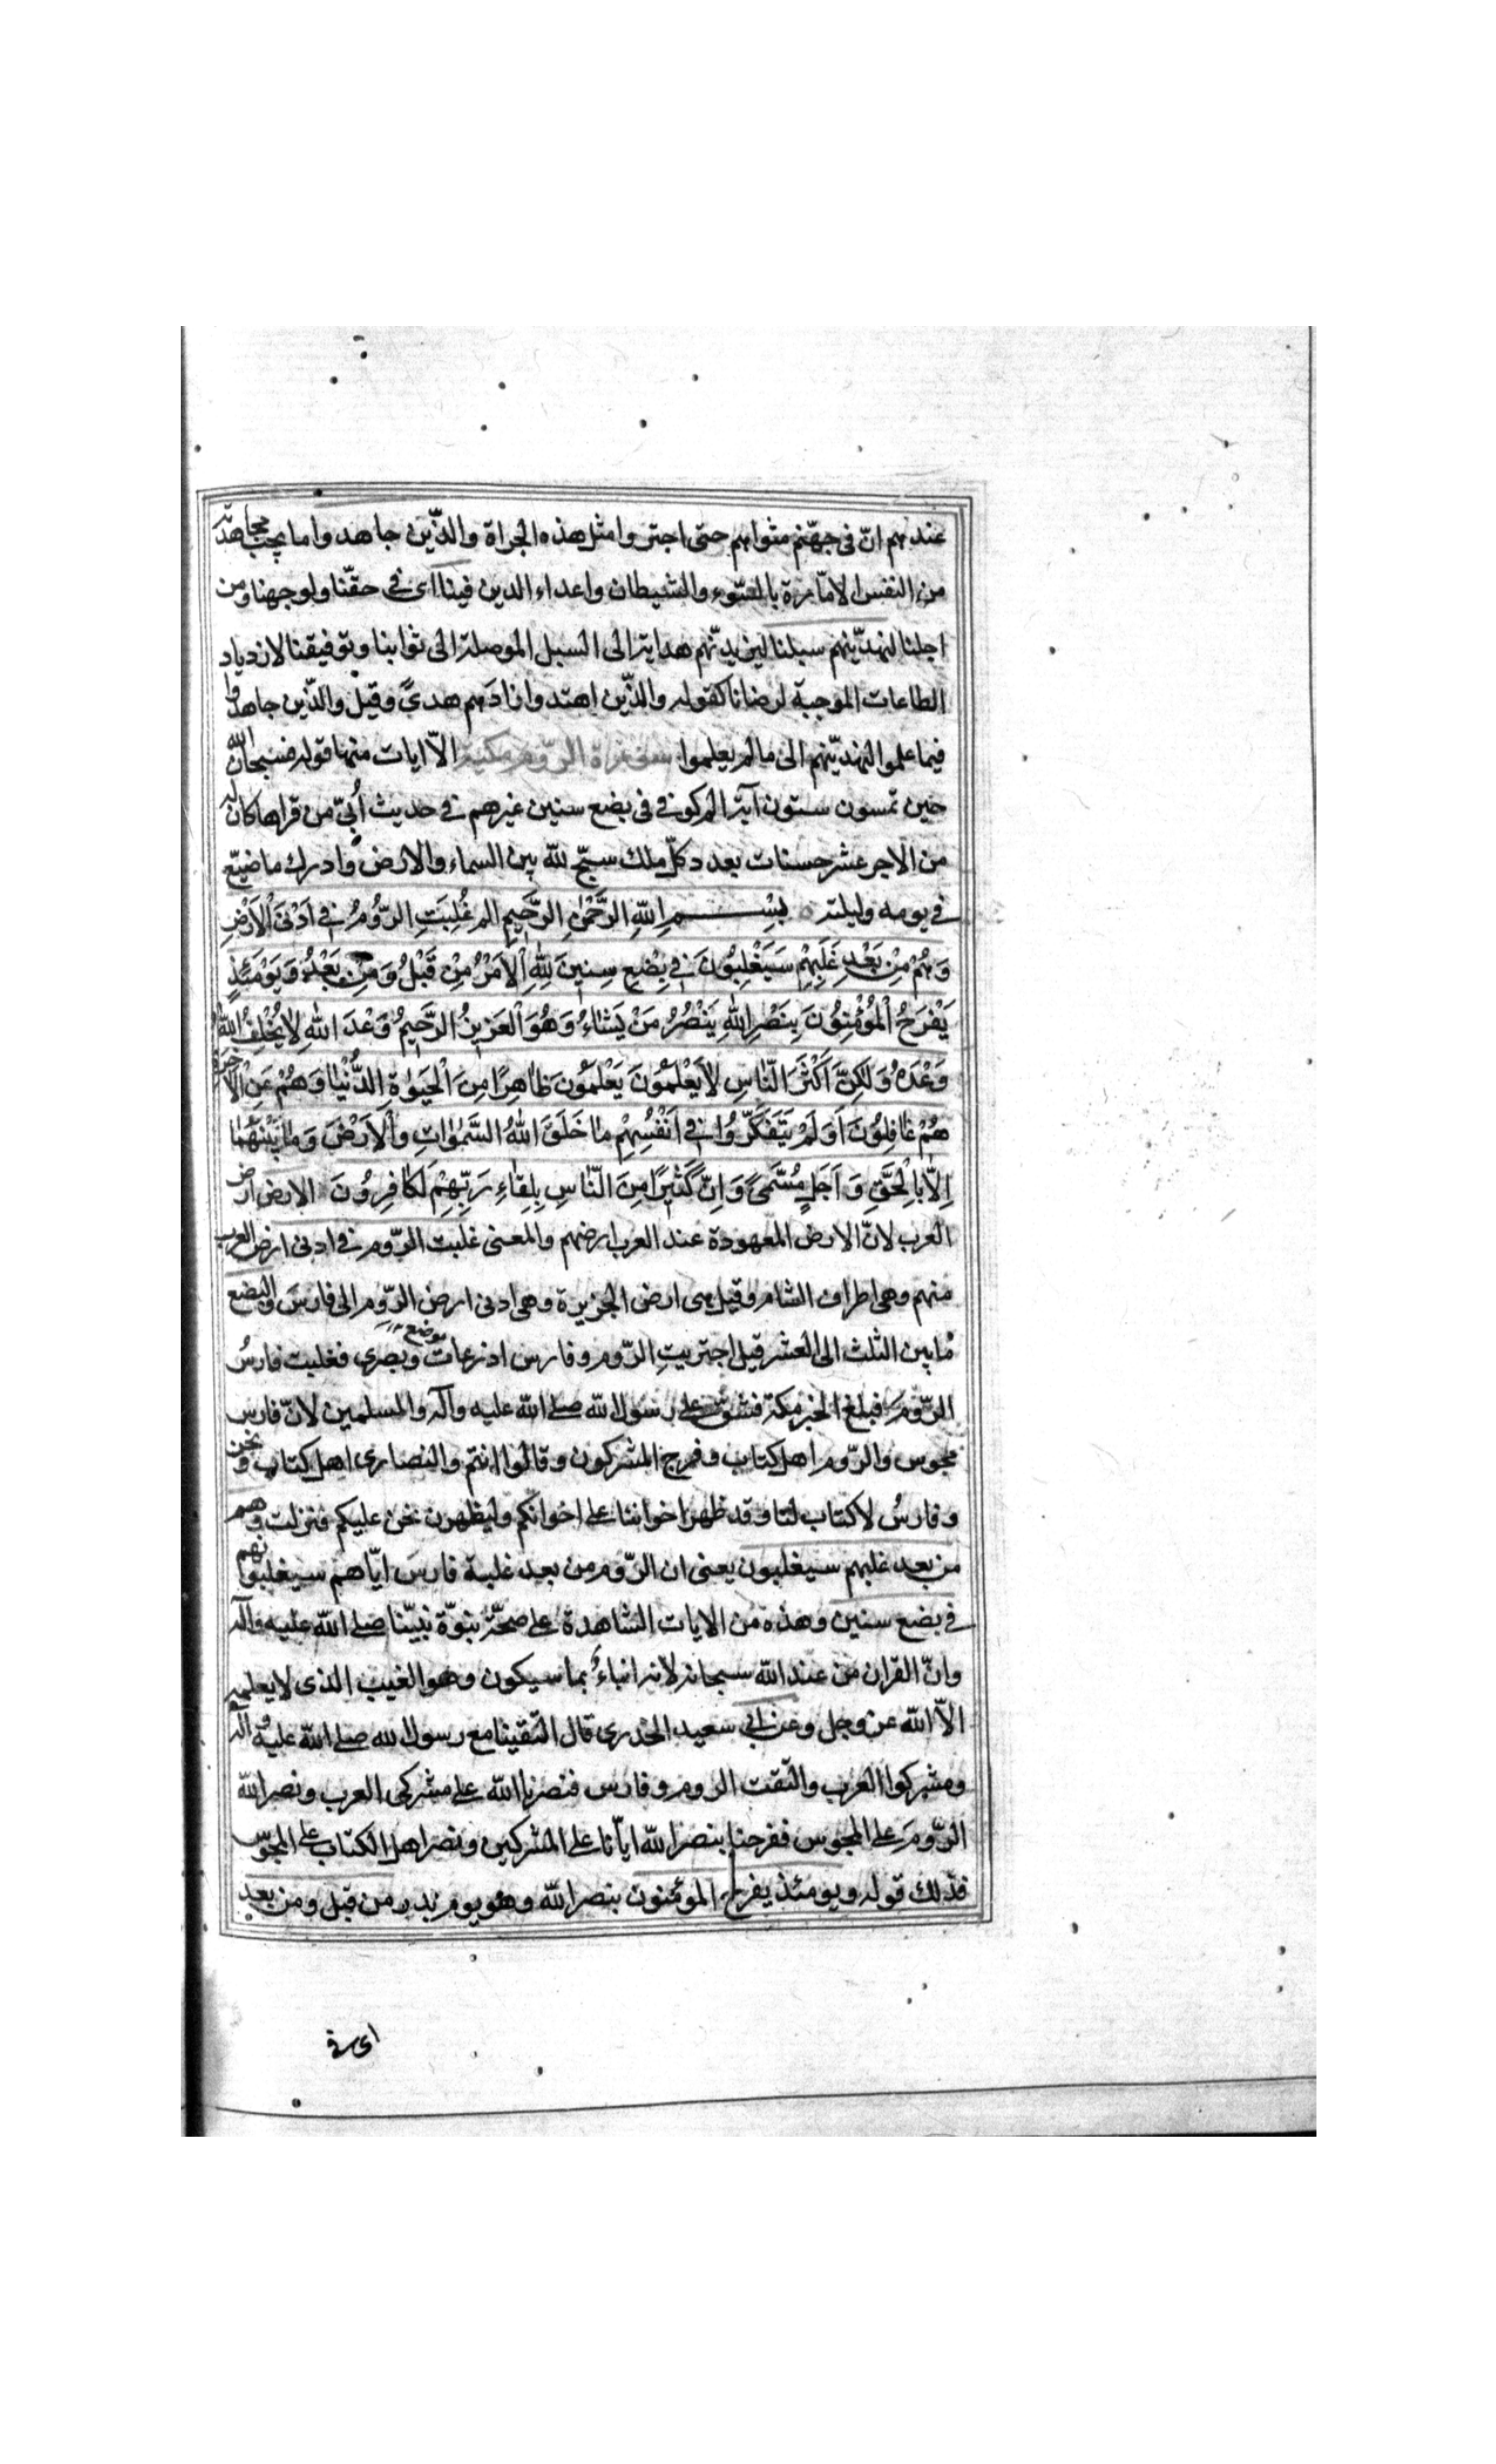 عندهم انّ فى جهنّم مثواهم حتى اجتروا مثل هذه الجراة والذّين جاهدوا ما يجب مجاهدته
من النفس الامّارة بالسّوء والشيطان واعداء الدين فينا اى فى حقّنا ولوجهنا ومن
اجلنا لنهديّنهم سبلنا ليزيدنّهم هداية الى السبل الموصلة الى ثوابنا وتوفيقنا لازدياد
الطاعات الموجبة لرضانا كقوله والذّين اهتدوا زادهم هدىً وقيل والذّين جاهدوا
فيما علموا لنهديّنهم الى ما لم يعلموا سورة الرّوم مكية الاّ ايات منها قوله فسبحان الله
حين تمسون ستون آية الم كوفى فى بضع سنين غيرهم فى حديث أُبىّ من قراها كان له
من الاجر عشر حسنات بعدد كلّ ملك سبّح لله بين السماء والارض وادرك ما ضيّع
فى يومه وليلته بِسْمِ اللهِ الرَّحْمٰنِ الرَّحِيمِ الم غُلِبَتِ الرُّومُ فِى اَدْنَى الْاَرْضِ
وَهُمْ مِنْ بَعْدِ غَلَبِهِمْ سَيَغْلِبُونَ فِى بِضْعِ سِنِينَ لِلّٰهِ الْاَمْرُ مِنْ قَبْلُ وَمِنْ بَعْدُ وَيَوْمَئِذٍ
يَفْرَحُ الْمُؤْمِنُونَ بِنَصْرِ اللهِ يَنْصُرُ مَنْ يَشَاءُ وَهُوَ الْعَزِيزُ الرَّحِيمُ وَعْدَ اللهِ لَا يُخْلِفُ اللهُ
وَعْدَهُ وَلٰكِنَّ اَكْثَرَ النَّاسِ لَا يَعْلَمُونَ يَعْلَمُونَ ظَاهِرًا مِنَ الْحَيٰوةِ الدُّنْيَا وَهُمْ عَنِ الْاٰخِرَةِ
هُمْ غَافِلُونَ اَوَلَمْ يَتَفَكَّرُوا فِى اَنْفُسِهِمْ مَا خَلَقَ اللهُ السَّمٰوَاتِ وَالْاَرْضَ وَمَا بَيْنَهُمَا
اِلَّا بِالْحَقِّ وَاَجَلٍ مُسَمًّى وَاِنَّ كَثِيرًا مِنَ النَّاسِ بِلِقَاءِ رَبِّهِمْ لَكَافِرُونَ الارض ارض
العرب لانّ الارض المعهودة عند العرب ارضهم والمعنى غلبت الرّوم فى ادنى ارض العرب
منهم وهى اطراف الشام وقيل هى ارض الجزيرة وهى ادنى ارض الرّوم الى فارس والبضع
ما بين الثلث الى العشر قيل اجتربت الرّوم وفارس اذرعات وبصرى موضع فغلبت فارسُ
الرّومَ فبلغ الخبر مكة فشق على رسول الله صلى الله عليه وآله والمسلمين لانّ فارس
مجوس والرّوم اهل كتاب وفرح المشركون وقالوا انتم والنصارى اهل كتاب ونحن
وفارسُ لا كتاب لنا وقد ظهر اخواننا على اخوانكم وليظهرن نحن عليكم فنزلت وهم
من بعد غلبهم سيغلبون يعنى ان الرّوم من بعد غلبة فارسَ ايّاهم سيغلبونهم
فى بضع سنين وهذه من الايات الشاهدة على صحّة نبوّة نبيّنا صلى الله عليه وآله
وانّ القران من عند الله سبحانه لانه انباءٌ بما سيكون وهو الغيب الذى لا يعلمه
الاّ الله عز وجل وعن ابى سعيد الخدرى قال التقينا مع رسول الله صلى الله عليه وآله
ومشركوا العرب والتقت الروم وفارس فنصرنا الله على مشركى العرب ونصر الله
الرّومَ على المجوس ففرحنا بنصر الله ايّانا على المشركين ونصر اهل الكتاب على المجوس
فذلك قوله ويومئذ يفرح المؤمنون بنصر الله وهو يوم بدر من قبل ومن بعد
اى فى